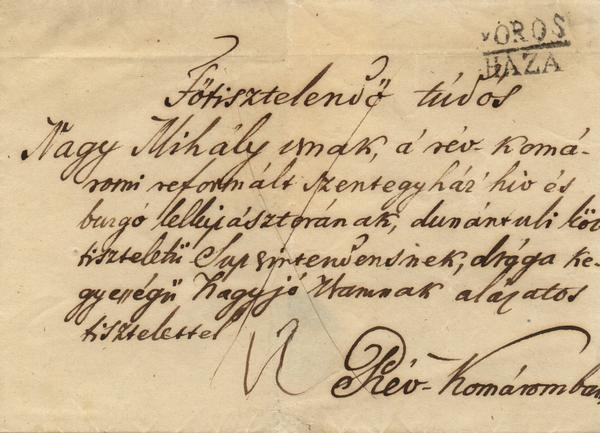 OROS
HÁZA
Főtisztelendő túdós
Nagy Mihály urnak, á rév-komá-
romi reformált szentegyház' hiv és
buzgó lelkipásztorának, dunántuli köz
tiszteletű Superintendensnek, drága ke-
gyességű Nagyjó Uramnak alázatos
tisztelettel
Rév-Komáromban